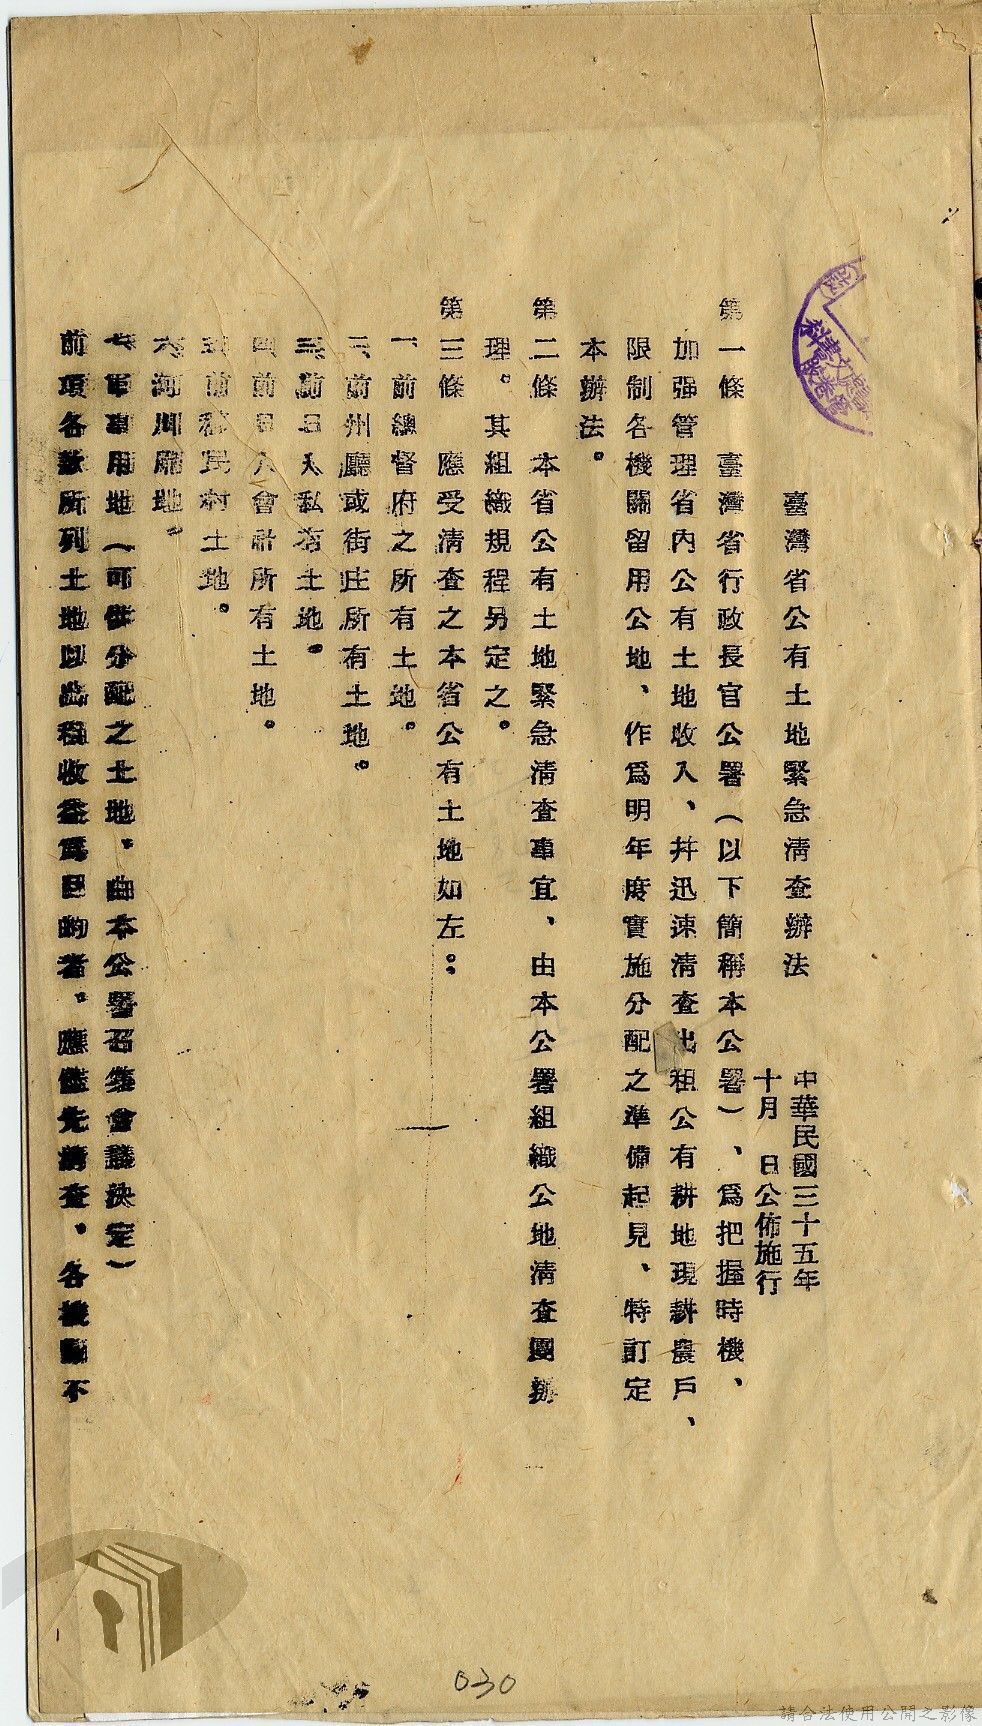 臺灣省公有土地緊急清查辦法
中華民國三十五年
十月　日公佈施行
第一條　臺灣省行政長官公署（以下簡稱本公署）、爲把握時機、
加强管理省內公有土地收入、幷迅速清查出租公有耕地現耕農戶、
限制各機關留用公地、作爲明年度實施分配之準備起見、特訂定
本辦法。
第二條　本省公有土地緊急清查事宜、由本公署組織公地清查團辦
理。其組織規程另定之。
第三條　應受清查之本省公有土地如左：
一、前總督府之所有土地。
二、前州廳或街庄所有土地。
三、前日人私有土地。
四、前日人會社所有土地。
五、前移民村土地。
六、河川廢地。
七、軍事用地（可供分配之土地、由本公署召集會議決定）
前項各款所列土地以出租收益爲目的者、應儘先清查、各機關不
030
請合法使用公開之影像